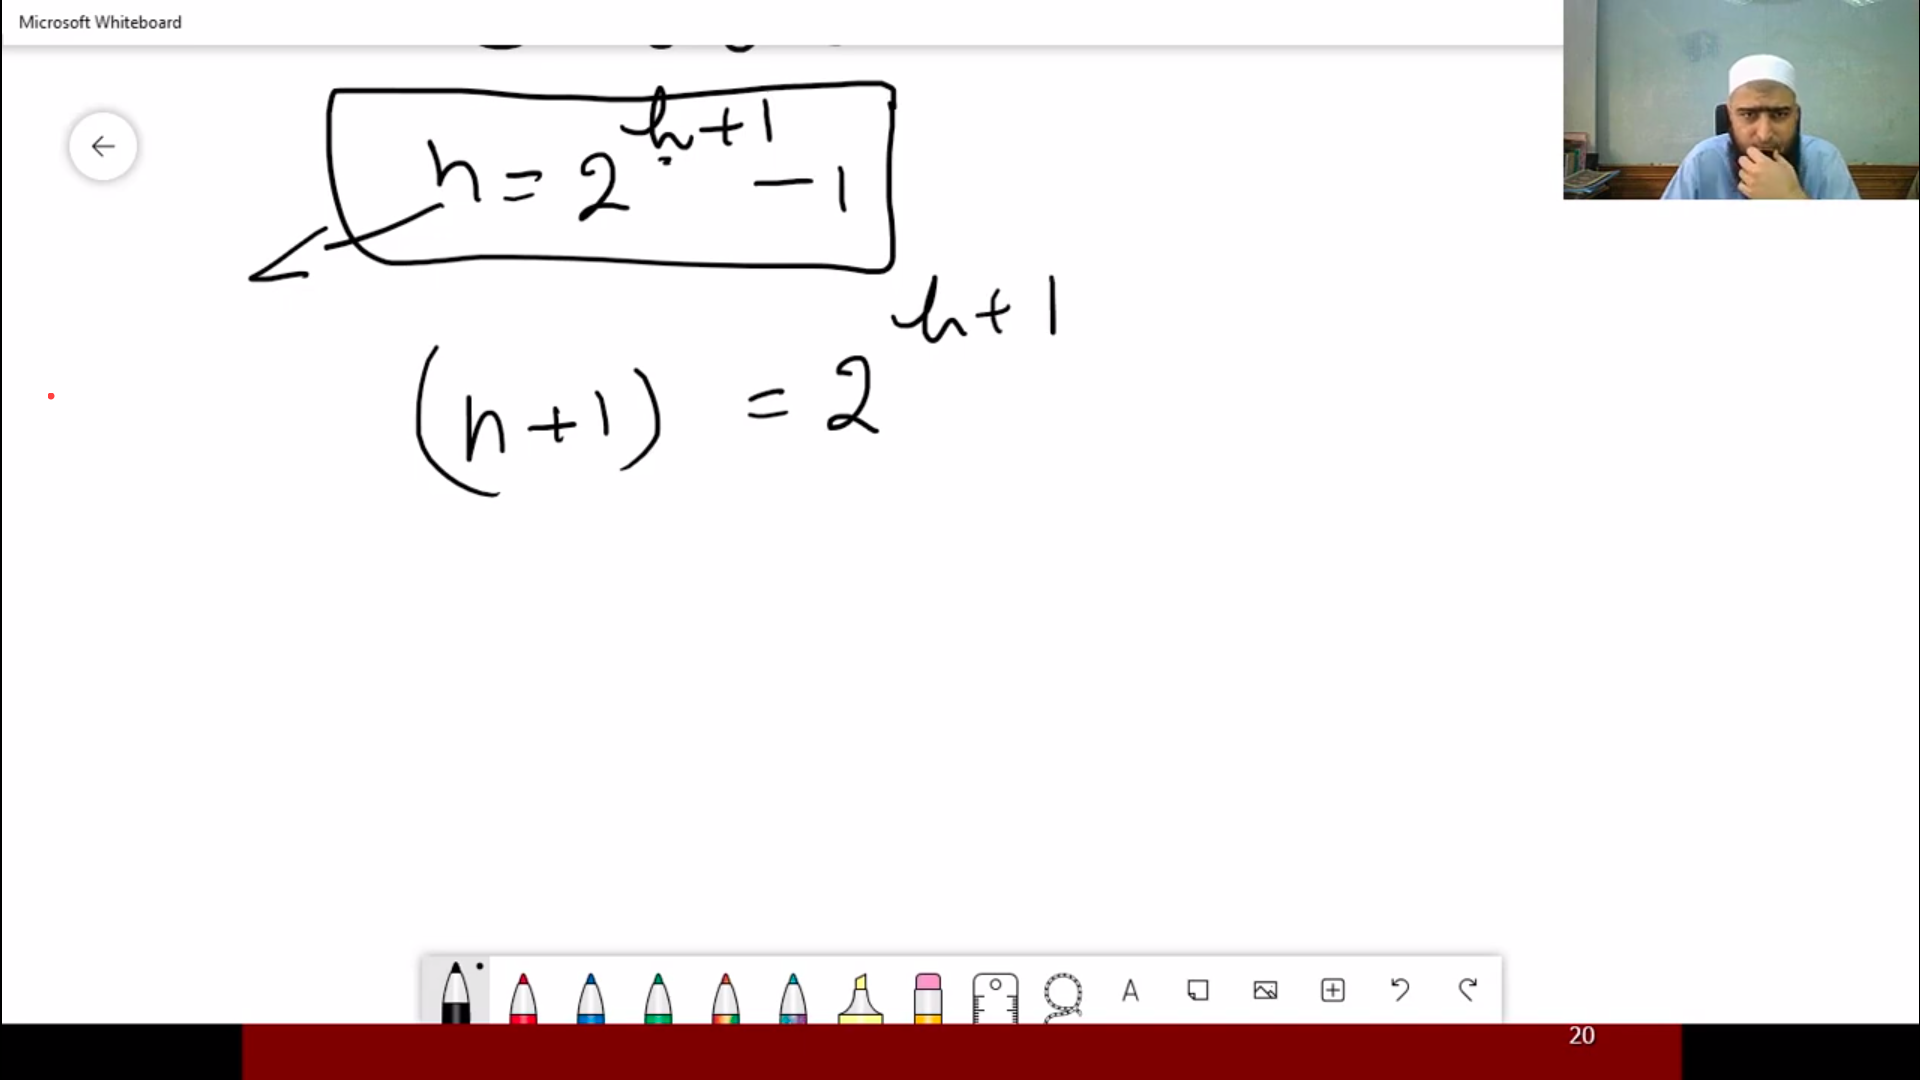 Microsoft Whiteboard
n = 2^{h+1} - 1
(n+1) = 2^{h+1}
A
20